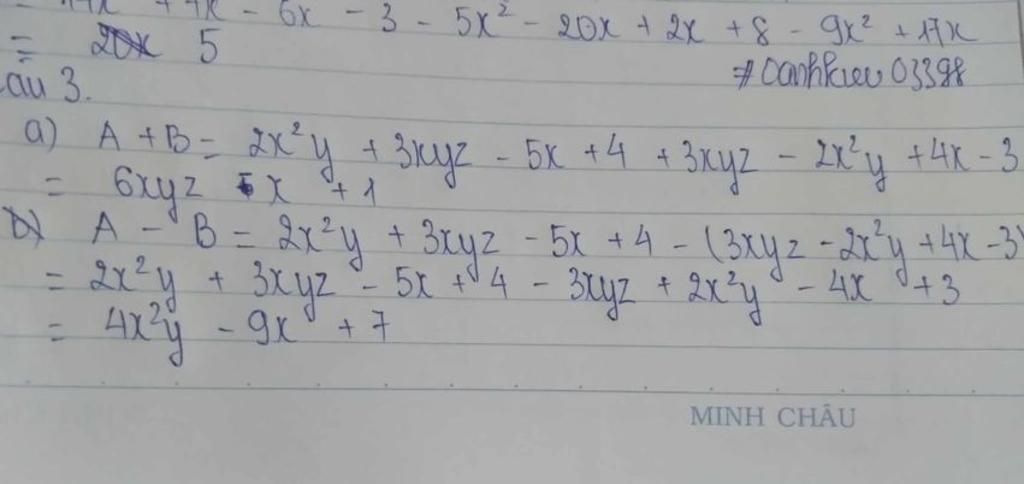 + 4x - 6x - 3 - 5x² - 20x + 2x + 8 - 9x² + 17x
= 5
#oanhkieu03398
Câu 3.
a) A + B = 2x²y + 3xyz - 5x + 4 + 3xyz - 2x²y + 4x - 3
= 6xyz - x + 1
b) A - B = 2x²y + 3xyz - 5x + 4 - (3xyz - 2x²y + 4x - 3)
= 2x²y + 3xyz - 5x + 4 - 3xyz + 2x²y - 4x + 3
= 4x²y - 9x + 7
MINH CHÂU